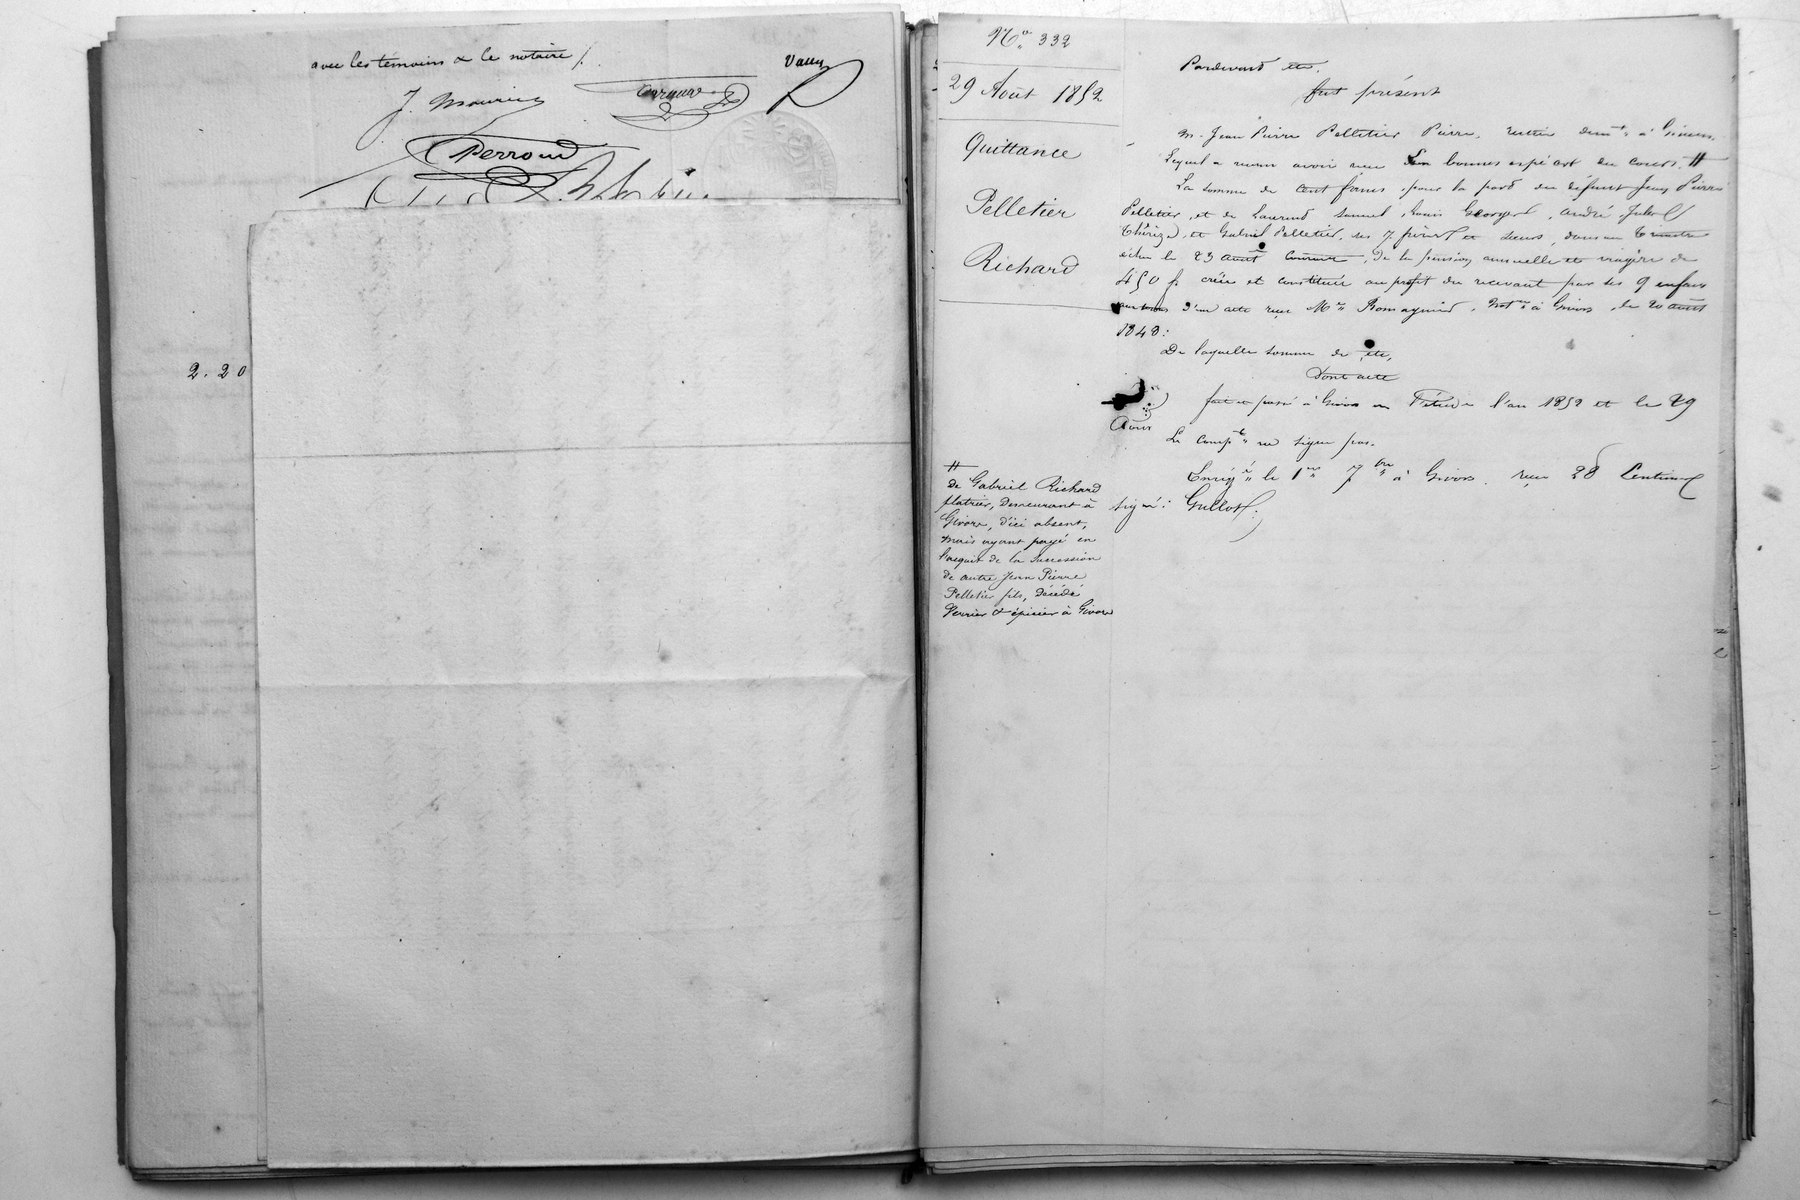 avec les témoins & le notaire /.
J. Maurice
Perroud
2.20
No 332
29 Août 1852
Quittance
Pelletier
Richard
Pardevant etc.
fut présent
M. Jean Pierre Pelletier Pierre, rentier demt à Givors.
Lequel a reconnu avoir reçu en bonnes espèces du cours #
La somme de cent francs, pour la part du défunt Jean Pierre
Pelletier, et de Laurent Louis George, André, Jules
Thérèze, et Gabriel Pelletier, ses 7 frères et sœurs, dans un trimestre
échu le 23 août courant, de la pension annuelle et viagère de
450 f. créée et constituée au profit du recevant par ses 9 enfans
aux termes d'un acte reçu Me Romagnier, notre à Givors, le 20 août
1848:
De laquelle somme de etc,
Dont acte
fait et passé à Givors en l'étude l'an 1852 et le 29
Août
Le compt ne signe pas.
Enregé le 1er 7bre à Givors. reçu 28 Centimes
signé: Gullot.
#
de Gabriel Richard
platrier, demeurant à
Givors, d'ici absent,
mais ayant payé en
l'acquit de la Succession
de autre Jean Pierre
Pelletier fils, décédé
Verrier & épicier à Givors